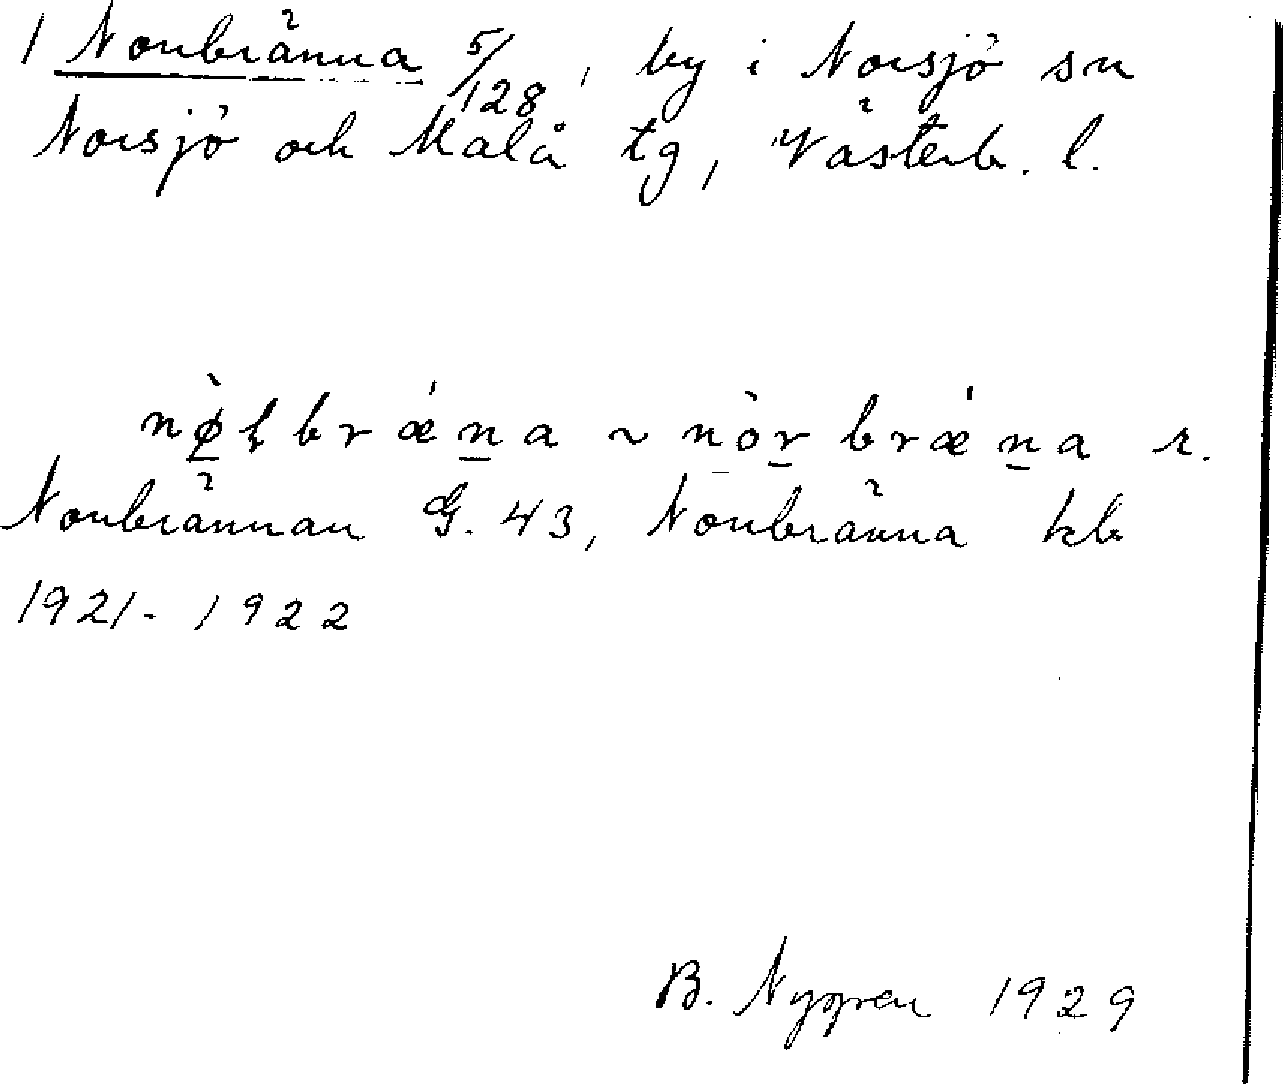 1 Norrbränna 5/128, by i Norsjö sn
Norsjö och Malå tg, Västerb. l.
nø̀ɽbrǽn̲a ~ nòr̲brǽn̲a r.
Norrbrännan G. 43, Norrbränna kb
1921-1922
B. Nygren 1929